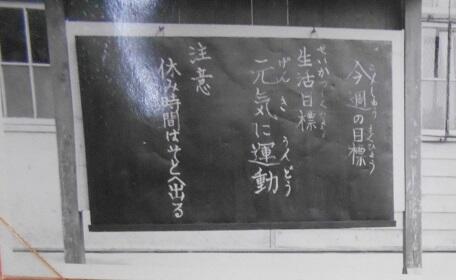 今週の目標
こんしゅう もくひょう
生活目標
せいかつもくひょう
元気に運動
げんき うんどう
注意
休み時間はそとへ出る